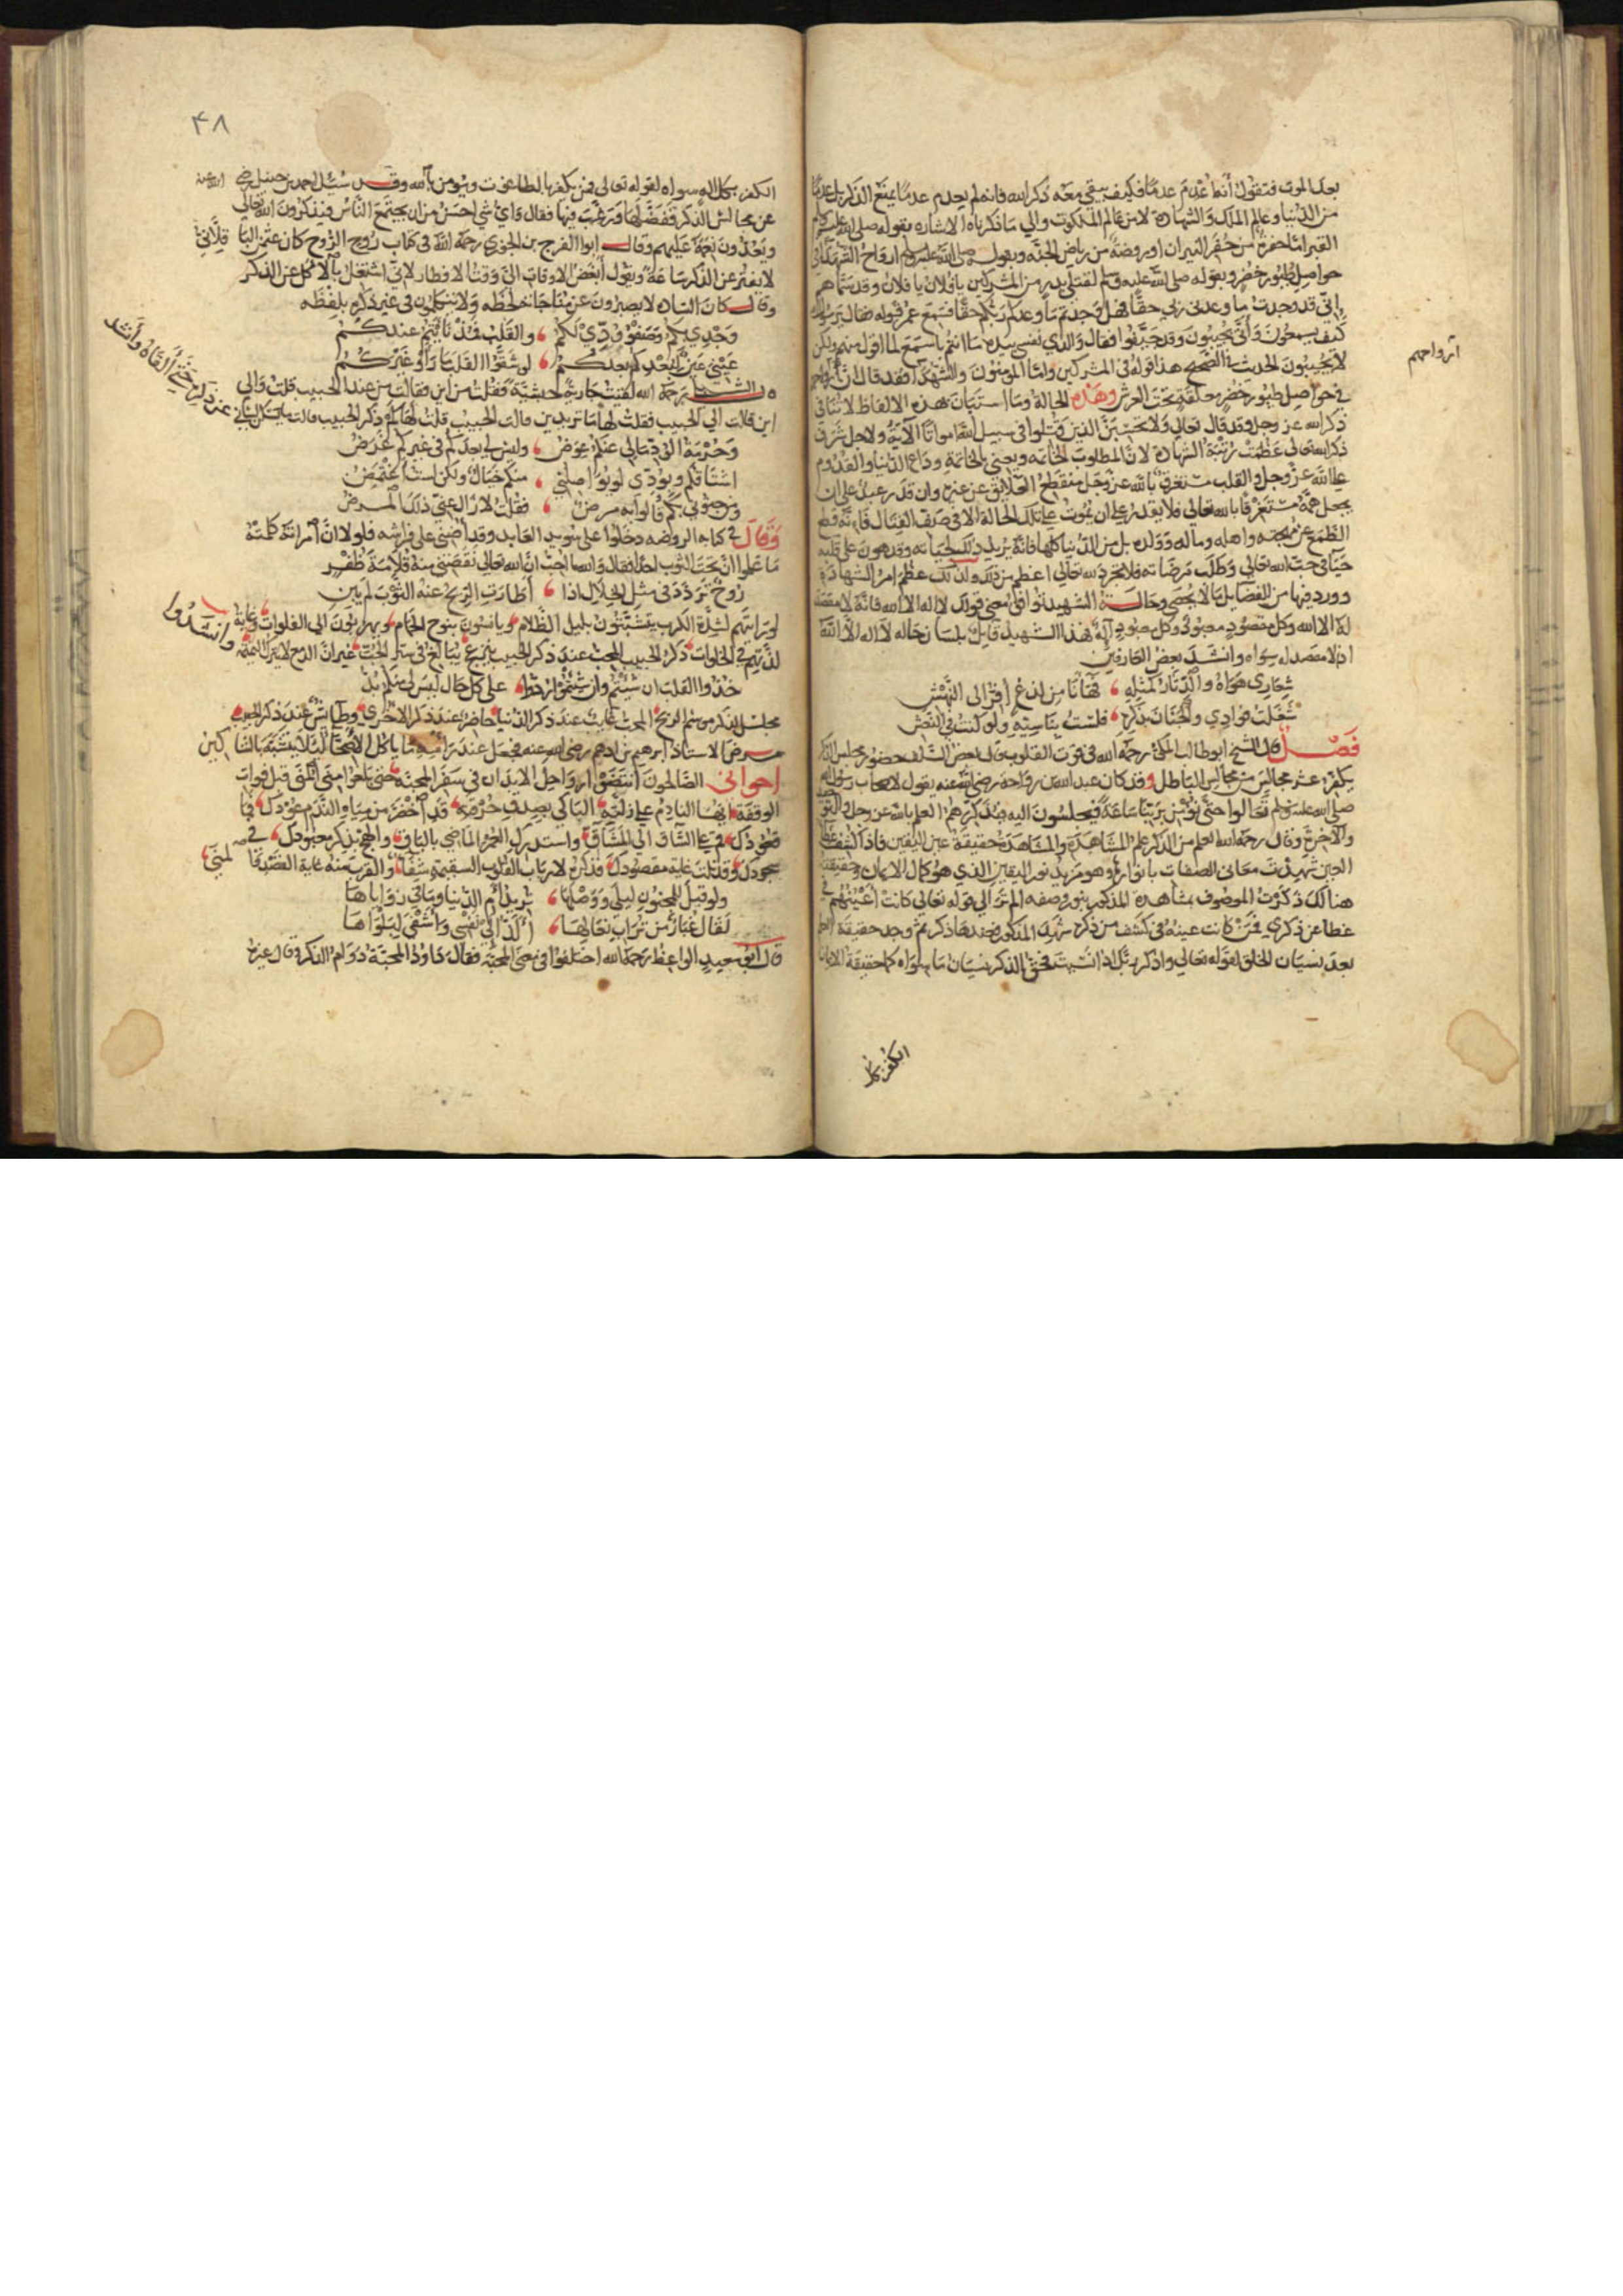 بعد الموت فتقول أنه عُدِمَ عدمًا فكيف يبقى معه ذكر الله فانه لم يعدم عدمًا يمنع الذكر بل عدمًا
من الدنيا وعالم الملك والشهادة لا من عالم الملكوت والى ما ذكرناه الاشارة بقوله صلى الله عليه وسلم
القبر اما حفرة من حفر النيران او روضة من رياض الجنة وبقوله صلى الله عليه وسلم ارواح الشهداء في
حواصل طيور خضر وبقوله صلى الله عليه وسلم لقتلى بدر من المشركين يا فلان يا فلان وقد سماهم
انى قد وجدت ما وعدنى ربى حقًا فهل وجدتم ما وعدكم ربكم حقًا فسمع عمر قوله فقال يرسول الله
كيف يسمعون وأنّى يجيبون وقد جيفوا فقال والذي نفسى بيده ما انتم باسمع لما اقول منهم ولكن
لا يجيبون الحديث فى الصحيح هذا قوله فى المشركين واما المومنون والشهدا فقد قال ان
ارواحهم
في حواصل طيور خضر معلقة تحت العرش وهذه الحالة وما استبان بهذه الالفاظ لا تنافى
ذكر الله عز وجل وقد قال تعالى ولا تحسبن الذين قتلوا فى سبيل الله امواتًا الآية ولاجل شرف
ذكر الله تعالى عظمت رتبة الشهادة لان المطلوب الخاتمة ونعني بالخاتمة وداع الدنيا والقدوم
على الله عز وجل والقلب مستغرق بالله عز وجل منقطع العلايق عن غيره وان قدر عبد على ان
يجعل همه مستغرقًا بالله تعالى فلا يقدر على ان يموت على تلك الحالة الا في صف القتال فانه قطع
الطمع عن مهجته واهله وماله وولده بل من الدنيا كلها فانه يريد ذلك لحياته وقد هون على قلبه
حياته فى حب الله تعالى وطلب مرضاته فلا تجرد لله تعالى اعظم من ذلك ولذلك عظم امر الشهادة
وورد فيها من الفضايل ما لا يحصى وحالة الشهيد توافق معنى قولك لا اله الا الله فانه لا مقصد
له الا الله وكل مقصود معبود وكل معبود اله فهذا الشهيد قايل بلسان حاله لا اله الا الله
اذ لا مقصد له سواه وانشد بعض العارفين
شعاري هواه والدثار لمثله
شغلت فوادي والجنان بذكره فلست بناسيه ولو كنت في النعش
فصل قال الشيخ ابو طالب المكي رحمه الله فى قوت القلوب قال بعض السلف حضور مجلس الذكر
يكفر عشر مجالس من مجالس الباطل وقد كان عبد الله بن رواحة رضى الله عنه يقول لاصحاب رسول الله
صلى الله عليه وسلم تعالوا حتى نؤمن بربنا ساعة فيجلسون اليه فيذكرهم العلم بالله عز وجل والتوحيد
والآخرة وقال رحمه الله العلم من الذكر علم المشاهدة والمشاهدة حقيقة عين اليقين فاذا كشف غطا
العين شهدت معانى الصفات بانوارها وهو مزيد نور اليقين الذي هو كمال الايمان وحقيقته
هنالك ذكرت الموصوف بمشاهدة المذكور بنور وصفه الم تر الى قوله تعالى كانت أعينهم في
غطا عن ذكري فمن كانت عينه فى كشف من ذكره شهد المذكور فعندها ذكر ثم وجد حقيقة
بعد نسيان الخلق لقوله تعالى واذكر ربك اذا نسيت فحق الذكر نسيان ما سواه كما حقيقة الايمان
الكفر بكل
٤٨
الكفر بكل اله سواه لقوله تعالى فمن يكفر بالطاغوت ويومن بالله وقد سئل احمد بن حنبل رضى الله عنه
عن مجالس الذكر ففضلها ورغب فيها فقال واي شي احسن من ان يجتمع الناس فيذكرون الله تعالى
ويعددون نعمه عليهم وقال ابو الفرج بن الجوزي رحمه الله فى كتاب روح الروح كان
لا يفتر عن الذكر ساعة ويقول أبغض الاوقات الى وقت الافطار لانى اشتغل بالاكل عن الذكر
وقال كان السادة لا يصبرون عن مناجاته لحظه ولا يتكلمون فى غير ذكره بلفظه
وجدي بكم وصفو ودّي لكم والقلب عندكم
عيني بعدكم لو شقوا القلب ما رأوا غيركم
قال الشبلى رحمة الله لقيت جارية حبشية فقلت من اين فقالت من عند الحبيب قلت والى
اين قالت الى الحبيب فقلت لها ما تريدين قالت الحبيب قلت لها كم ذكر الحبيب قالت ما يسكن لسانى
عن ذكره حتى ألقاه وأنشد
وحرمة الود مالى عنكم عوض وليس لى بعدكم فى غيركم غرض
اشتاقكم وبودّي لو يواصلنى منكم خيال ولكن لست أغتمض
ومن جنونى بكم قالوا به مرض فقلت لا زال عنى ذلك المرض
وقال فى كتابه الروضه دخلوا على سويد العابد وقد أضنى على فراشه فلولا ان امراته كلمته
ما علموا ان تحت الثوب احدًا فقال والله ما احب ان الله تعالى نقصنى منه قلامة ظفر
روح تردد فى مثل الخلال اذا أطارت الريح عنه الثوب لم يبن
لو رايتهم لشدة الكرب يتشبثون بليل الظلام ويانسون بنوح الحمام ويهربون الى الفلوات وغاية
لذتهم في الخلوات ذكر الحبيب للمحب عند ذكر الحبيب
وانشدوا
خذوا القلب ان شئتم وان شئتم على كل حال ليس لى منكم بد
مجلس الذكر موسم الربح المحب غايب عند ذكر الدنيا حاضر عند ذكر الاخرى وطايش عند ذكر الحبيب
مرض الاستاذ ابرهيم بن ادهم رضى الله عنه فجعل عند رأسه ما ياكل الاصحا لئلا يتشبه بالشاكين
اخوانى الصالحون أنضوا رواحل الابدان في سفر المحبة حتى بلغوا منى المنى قبل فوات
الوقفة ايها النادم على زلته الباكى بصدق حرقه قد اخضر من مياه الندم عودك
وقد نلت غاية مقصودك فذكره لارباب القلوب السقيمة شفا والقرب منه غاية القصد
ولو قيل للمجنون ليلى ووصلها تريد أم الدنيا وما فى زواياها
لقال غبار من تراب نعالها ألذ الى نفسى واشفى لبلواها
قال ابو سعيد الواعظ رحمه الله اختلفوا فى معنى المحبة فقال داود المحبة دوام الذكر وقال غيره